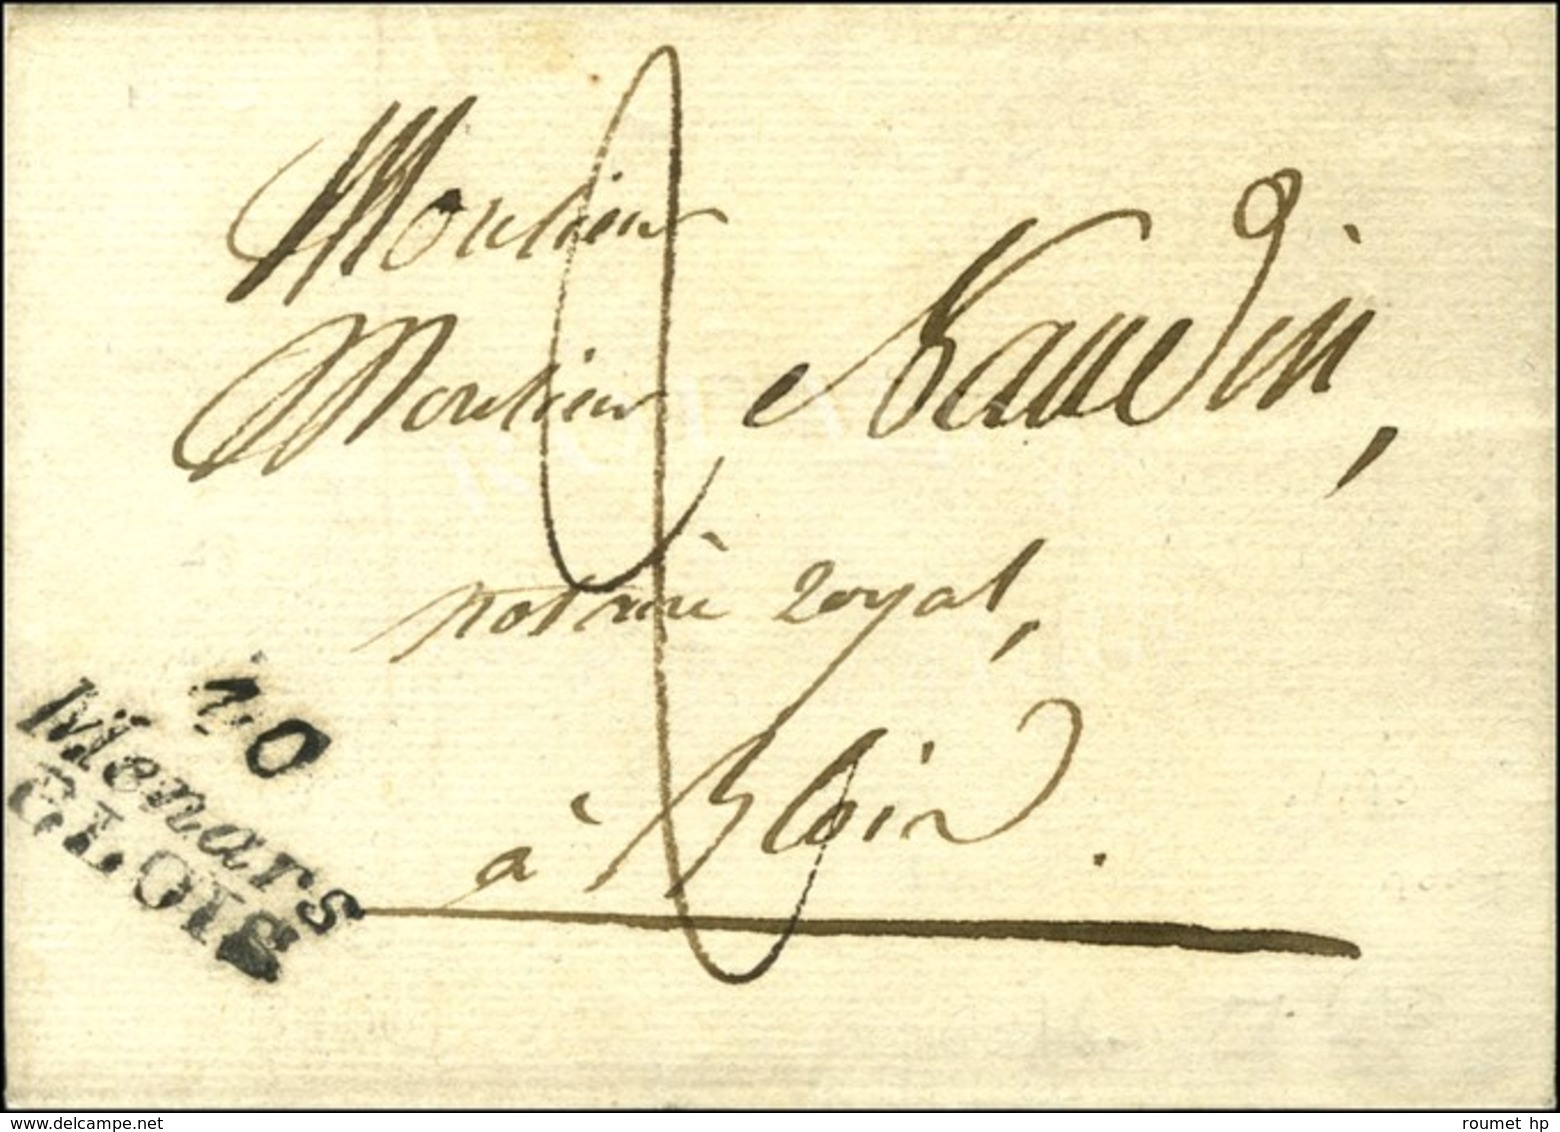 Monsieur
Monsieur Naudin,
notaire royal,
à Blois.
40
Menars
BLOIS
delcampe.net
roumet hp